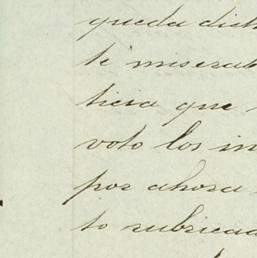 queda dich
te miserab
tiera que
voto los in
por ahora
to rubricad